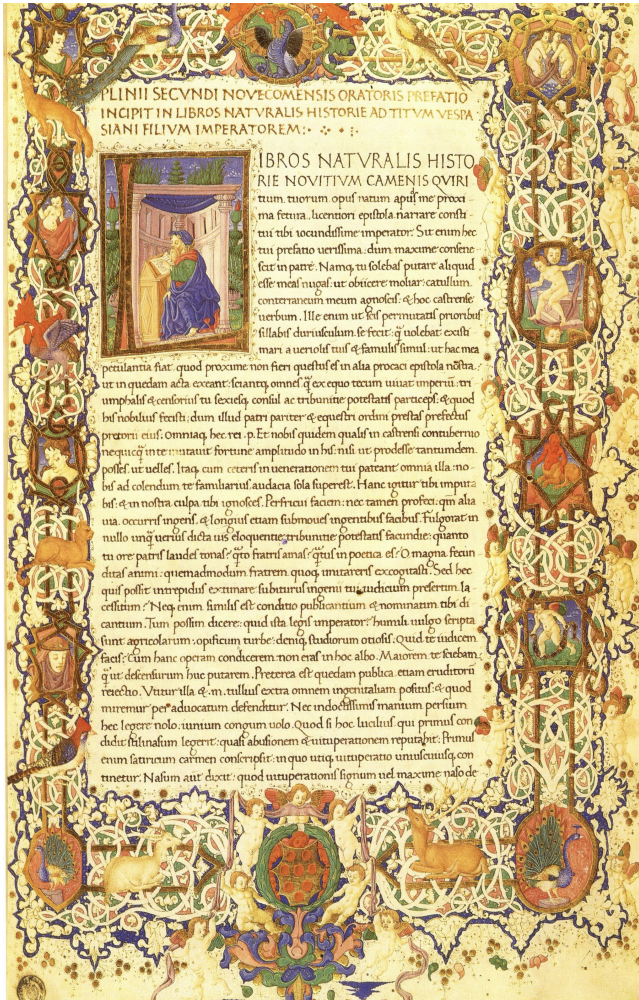 PLINII SECVNDI NOVECOMENSIS ORATORIS PREFATIO
INCIPIT IN LIBROS NATVRALIS HISTORIE AD TITVM VESPA
SIANI FILIVM IMPERATOREM:
LIBROS NATVRALIS HISTO
RIE NOVITIVM CAMENIS QVIRI
tium tuorum opus natum apud me proxi
ma fetura licentiori epistola narrare consti
tui tibi iocundissime imperator. Sit enim hec
tui prefatio uerissima: dum maxime consene
scit in patre. Namq, tu solebas putare aliquid
esse meas nugas: ut obiicere moliar catullum
conterraneum meum agnoscis: & hoc castrense
uerbum. Ille enim ut scis permutatis prioribus
sillabis duriusculum se fecit: q̄ uolebat existi
mari a ueriolis tuis & famulis simul: ut hac mea
petulantia fiat: quod proxime non fieri questus es in alia procaci epistola nostra.
ut in quedam acta exeant: sciantq, omnes q̄ ex equo tecum uiuat imperiū: tri
umphalis & censorius tu sexiesq, consul ac tribunitie potestatis particeps: & quod
his nobilius fecisti: dum illud patri pariter & equestri ordini prestas prefectus
pretorii eius: Omniaq, hec rei .p. Et nobis quidem qualis in castrensi contubernio
nequicq̄ in te mutauit fortune amplitudo in his: nisi ut prodesse tantumdem
posses: ut uelles. Itaq, cum ceteris in uenerationem tui pateant omnia illa: no-
bis ad colendum te familiarius audacia sola superest. Hanc igitur tibi imputa
bis: & in nostra culpa tibi ignosces. Perfricui faciem: nec tamen profeci: qm̄ alia
uia occurris ingens: & longius etiam submoues ingentibus facibus. Fulgorat in
nullo unq̄ uerius dicta uis eloquentie: tribunitie potestatis facundie: quanto
tu ore patris laudes tonas: q̄to fratris amas: q̄tus in poetica es. O magna fecun
ditas animi: quemadmodum fratrem quoq, imitareris excogitasti. Sed hec
quis possit intrepidus extimare subiturus ingenii tui iudicium presertim la-
cessitum? Neq, enim similis est conditio publicantium & nominatim tibi di
cantium. Tum possim dicere: quid ista legis imperator? humili uulgo scripta
sunt: agricolarum: opificum turbe: deniq, studiorum otiosis. Quid te iudicem
facis? Cum hanc operam condicerem: non eras in hoc albo. Maiorem te sciebam
q̄ ut descensurum huc putarem. Preterea est quedam publica etiam eruditorū
reiectio. Vtitur illa & .m. tullius extra omnem ingenii aliam positus: & quod
miremur per aduocatum defenditur. Nec indoctissimis manium persium
hec legere nolo: iunium congum uolo. Quod si hoc lucilius qui primus con
didit stili nasum
enim satiricum carmen conscripsit: in quo utiq, uituperatio uniuscuiusq, con
tinetur. Nasum aut dixit: quod uituperationis signum uel maxime naso de